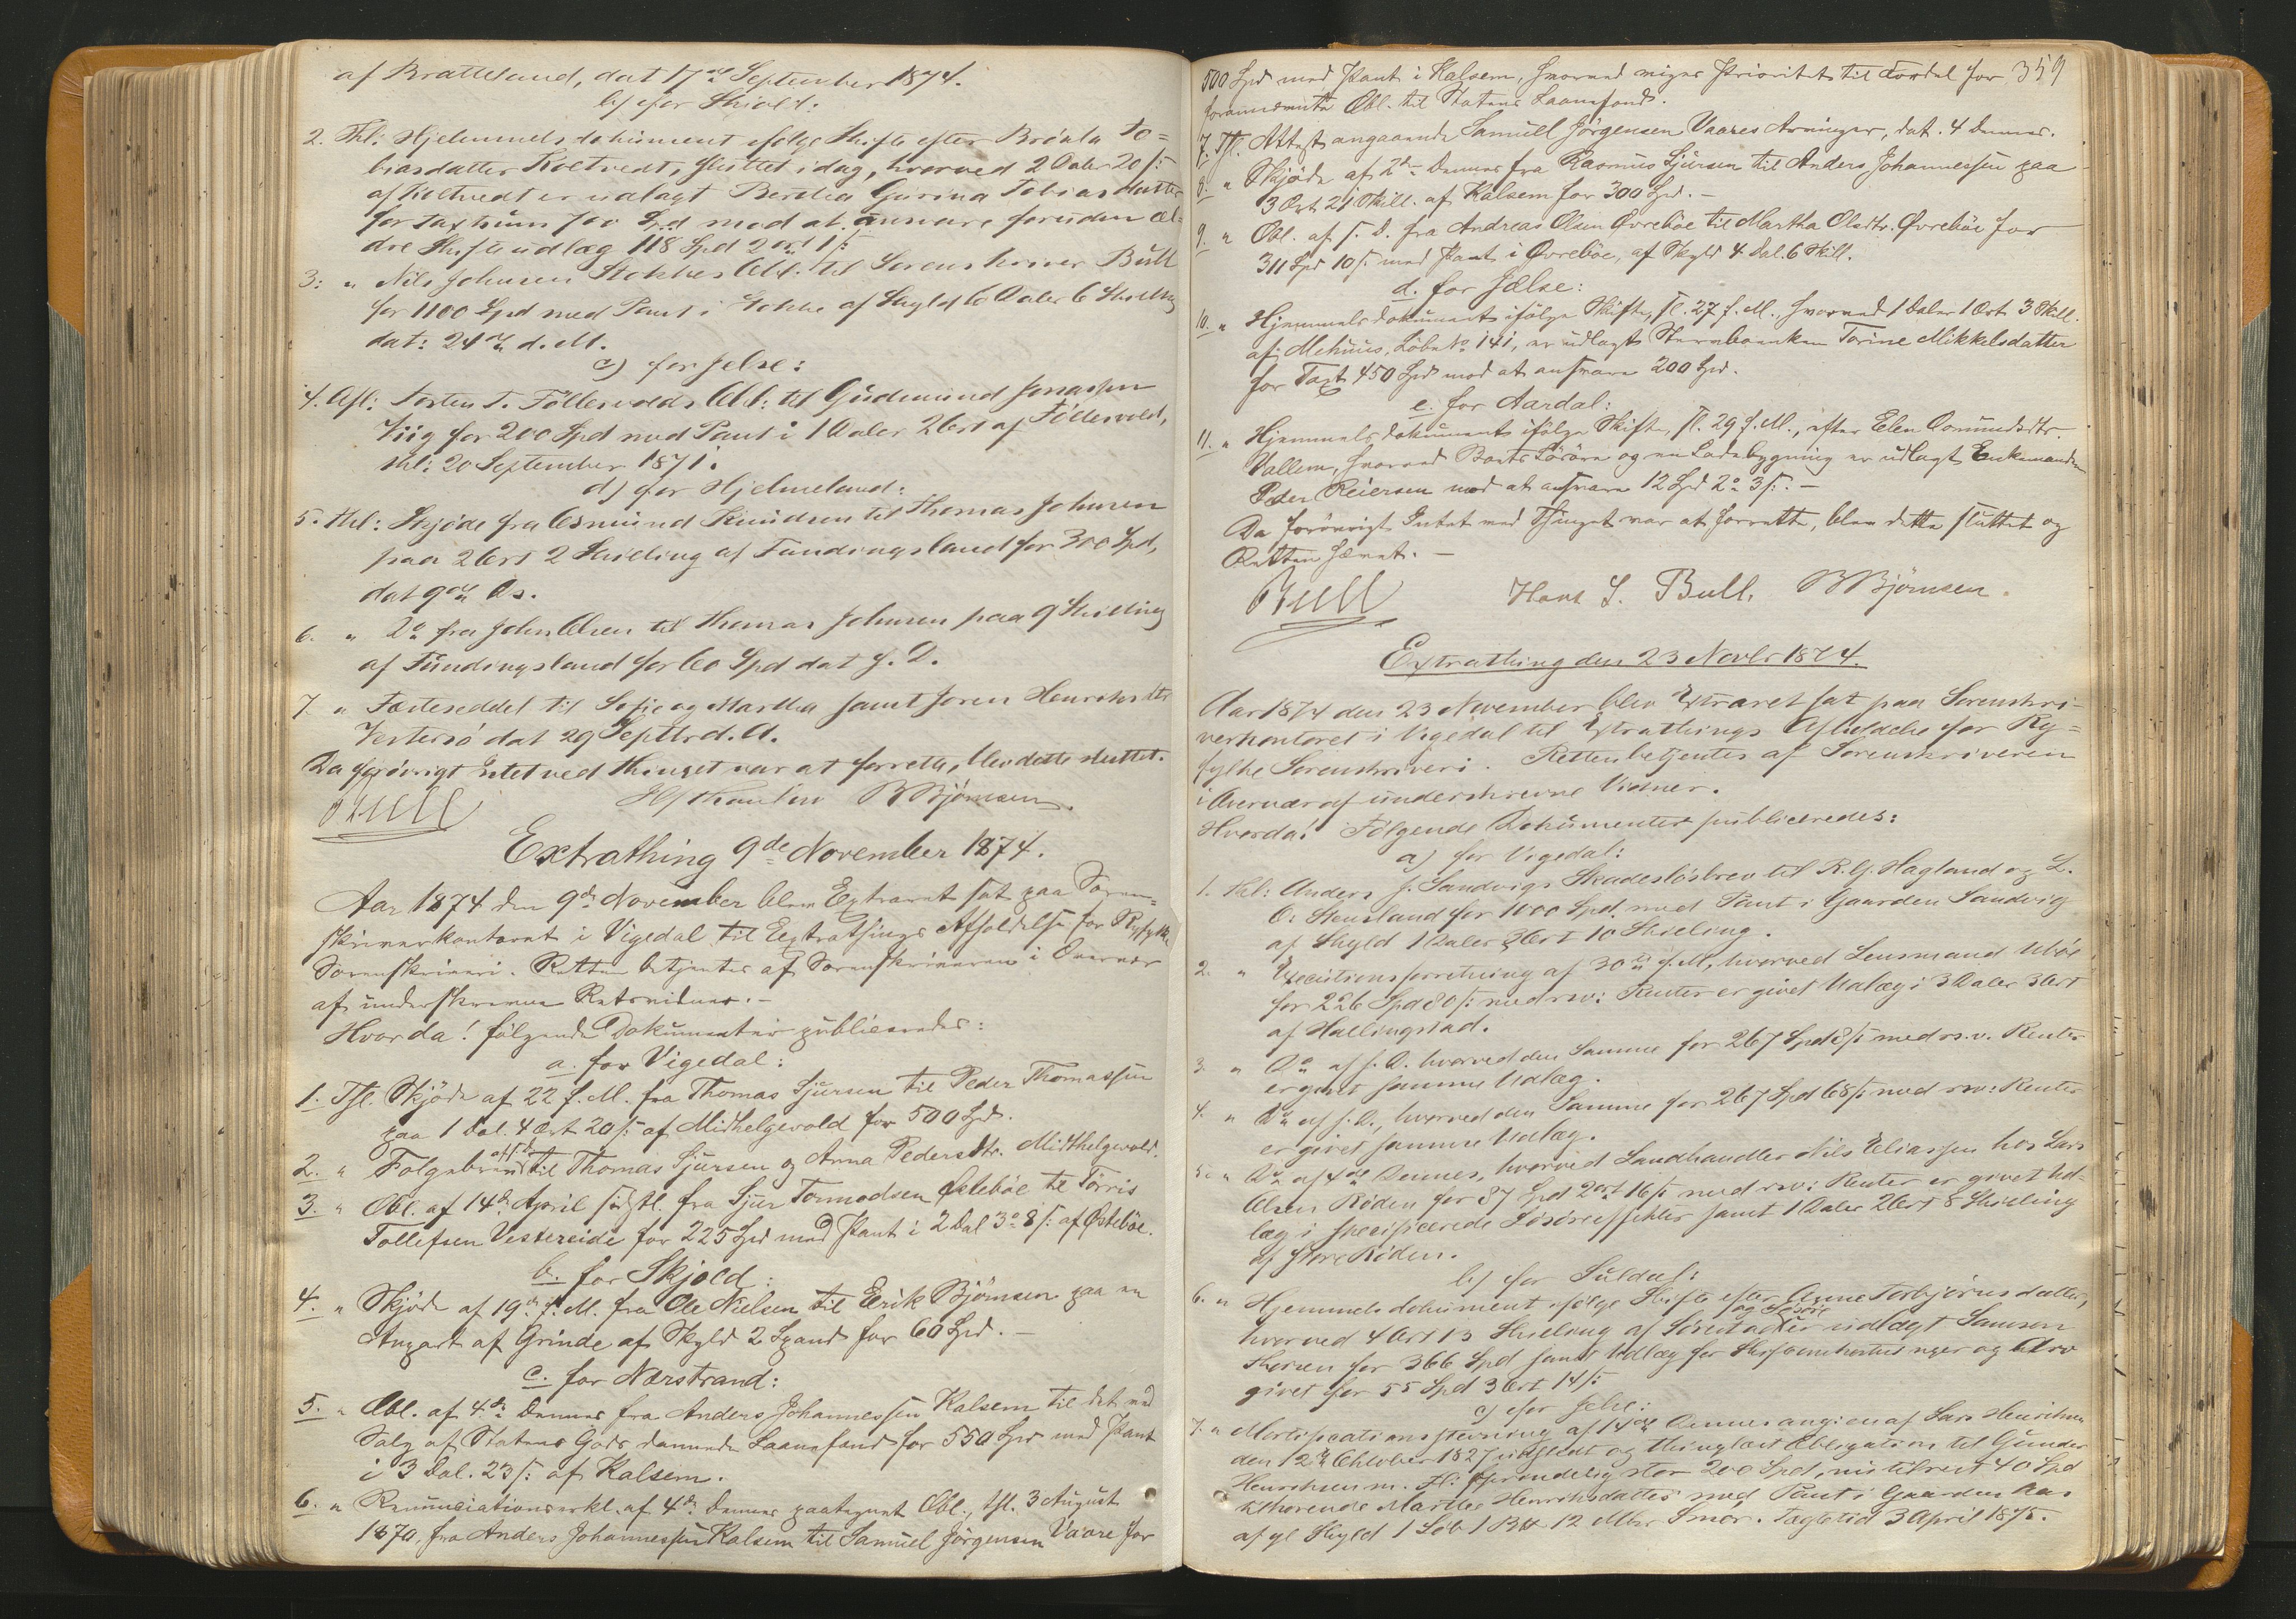 af Bratteland, dat 17de September 1874.
b) for Skjold:
2. Thl: Hjemmelsdokument ifølge Skifte efter Brönla To=
biasdatter Koltvedt, sluttet idag, hvorved 2 Daler 20 s:
af Koltvedt er udlagt Berthea Gurina Tobiasdatter
for Taxtsum 700 Spd mod at ansvare foruden æl=
dre Skifteudlæg 118 Spd 2 ort 1 s:
3: " Nils Johnsen Stokkes Obl. til Sorenskriver Bull
for 1100 Spd med Pant i Stokke af Skyld 6 Daler 6 Skilling
dat: 24de d. M.
c) for Jelse:
4. Afl: Torsten T. Föllesvolds Obl: til Gudmund Jonassen
Viig for 200 Spd med Pant i 1 Daler 2 Ort af Föllesvold,
thl: 20 September 1871.
d) for Hjelmeland:
5. Thl: Skjöde fra Osmund Knudsen til Thomas Johnsen
paa 2 Ort 2 Skilling af Fundingsland for 300 Spd,
dat 9de Ds.
6. " Do fra John Olsen til Thomas Johnsen paa 9 Skilling
af Fundingsland for 60 Spd dat s. D.
7. " Festeseddel til Sofie og Martha samt Joren Henriksdtr
Vestersö dat 29 Septbr d. A.
Da forövrigt Intet ved Thinget var at forrette, blev dette sluttet.
Bull BBjörnsen.
Extrathing 9de November 1874.
Aar 1874 den 9de November blev Extraret sat paa Soren=
skriverkontoret i Vigedal til Extrathings Afholdelse for Ryfylke
Sorenskriveri. Retten betjentes af Sorenskriveren i Overvær
af underskrevne Retsvidner. –
Hvorda! følgende Dokumenter publiceredes:
a. for Vigedal:
1. Thl. Skjöde af 22 f. M. fra Thomas Sjursen til Peder Thomassen
paa 1 Dal. 4 Ort 20 s: af Midthelgevold for 500 Spd.
2. " Folgebrev af s. D. til Thomas Sjursen og Anna Pedersdtr. Midthelgevold.
3. " Obl. af 14de April sidstl. fra Sjur Tormodsen Östeböe til Törris
Tollefsen Vestereide for 225 Spd med Pant i 2 Dal 3 o 8 s: af Østeböe.
b. for Skjold:
4. " Skjöde af 19de f. M. fra Ole Nielsen til Eerik Bjömsen paa en
Anpart af Grinde af Skyld 2 Spand for 60 Spd. –
c. for Nærstrand:
5. " Obl. af 4de Dennes fra Anders Johannessen Kalsem til det ved
Salg af Statens Gods dannede Laanefond for 550 Spd med Pant
i 3 Dal. 23 s: af Kalsem.
6. " Renunciationserkl. af 4de Dennes paategnet Obl., thl. 3 August
1870, fra Anders Johannessen Kalsem til Samuel Jörgensen Vaare for
359
500 Spd med Pant i Kalsem, hvorved viges Prioritet til Fordel for
forannævnte Obl. til Statens Laanefond.
7. Thl. Attest angaaende Samuel Jörgensen Vaares Arvinger, dat. 4 Dennes.
8. " Skjöde af 2de Dennes fra Rasmus Sjursen til Anders Johannessen paa
3 Ort 21 Skill. af Kalsem for 300 Spd. –
9. " Obl. af s. D. fra Andreas Olsen Øvreböe til Martha Olsdtr. Øvreböe for
311 Spd 10 s. med Pant i Øvreböe, af Skyld 4 Dal. 6 Skill.
d. for Jelse:
10. " Hjemmelsdokument ifølge Skifte, sl. 27 f. M., hvorved 1 Daler 1 Ort 3 Skill.
af Mehuus, Löbe No 141, er udlagt Stervboenken Torine Mikkelsdatter
for Taxt 450 Spd mod at ansvare 200 Spd.
e. for Aardal:
11. " Hjemmelsdokument ifølge Skifte, sl. 29 f. M., efter Elen Osmundsdtr.
Vallem, hvorved Boets Lösöre og en Ladebygning er udlagt Enkemanden
Peder Reiersen mod at ansvare 12 Spd 2 o 3 s. –
Da forövrigt Intet ved Thinget var at forrette, blev dette sluttet og
Retten hævet. –
Bull Hans S. Bull. BBjörnsen.
Extrathing den 23 Novbr 1874.
Aar 1874 den 23 November blev Extraret sat paa Sorenskri=
verkontoret i Vigedal til Extrathings Afholdelse for Ry=
fylke Sorenskriveri. Retten betjentes af Sorenskriveren
i Overvær af underskrevne Vidner.
Hvorda! Følgende Dokumenter publiceredes:
a) for Vigedal:
1. Thl: Anders J. Sandvigs Skadeslösbrev til R. G. Hagland og L.
O. Stensland for 1000 Spd. med Pant i Gaarden Sandvig
af Skyld 1 Daler 3 Ort 10 Skilling.
2. " Executionsforretning af 30te f. M, hvorved Lensmand Ubøe
for 226 Spd 80 s: med rsv: Renter er givet Udlæg i 3 Daler 3 Ort
af Hallingstad.
3. " Do af s. D. hvorved den Samme for 267 Spd 8 s: med rs. v. Renter
er givet samme Udlæg.
4. " Do af s. D., hvorved den Samme for 267 Spd 68 s: med rsv: Renter
er givet samme Udlæg.
5. " Do af 4de Dennes, hvorved Landhandler Nils Eliassen hos Lars
Olsen Röden for 87 Spd 2 ort 16 s: med rsv: Renter er givet Ud=
læg i specificerede Lösöreeffekter samt 1 Daler 2 Ort 8 Skilling
af Store Röden.
b) for Suldal:
6. " Hjemmelsdokument ifølge Skifte efter Anne Torbjörnsdatter,
hvorved 4 Ort 13 Skilling af og Lösöre er udlagt Samson
for 366 Spd samt Udlæg for og Arv
givet for 55 Spd 3 Ort 14 s:
c) for Jelse:
7. " Mortificationsstevning af 14de Dennes angien af Lars Henriksen
den 12te Oktober 1827 udstedt og thinglæst Obligation til Gunder
Henriksen m. Fl: oprindelig stor 200 Spd, nu tilrest 40 Spd
tilhørende Marthe Henriksdatter med Pant i Gaarden Aas
af gl Skyld 1 Löb 1 12 Mkr Smør. Tægtetid 3 April 1875.